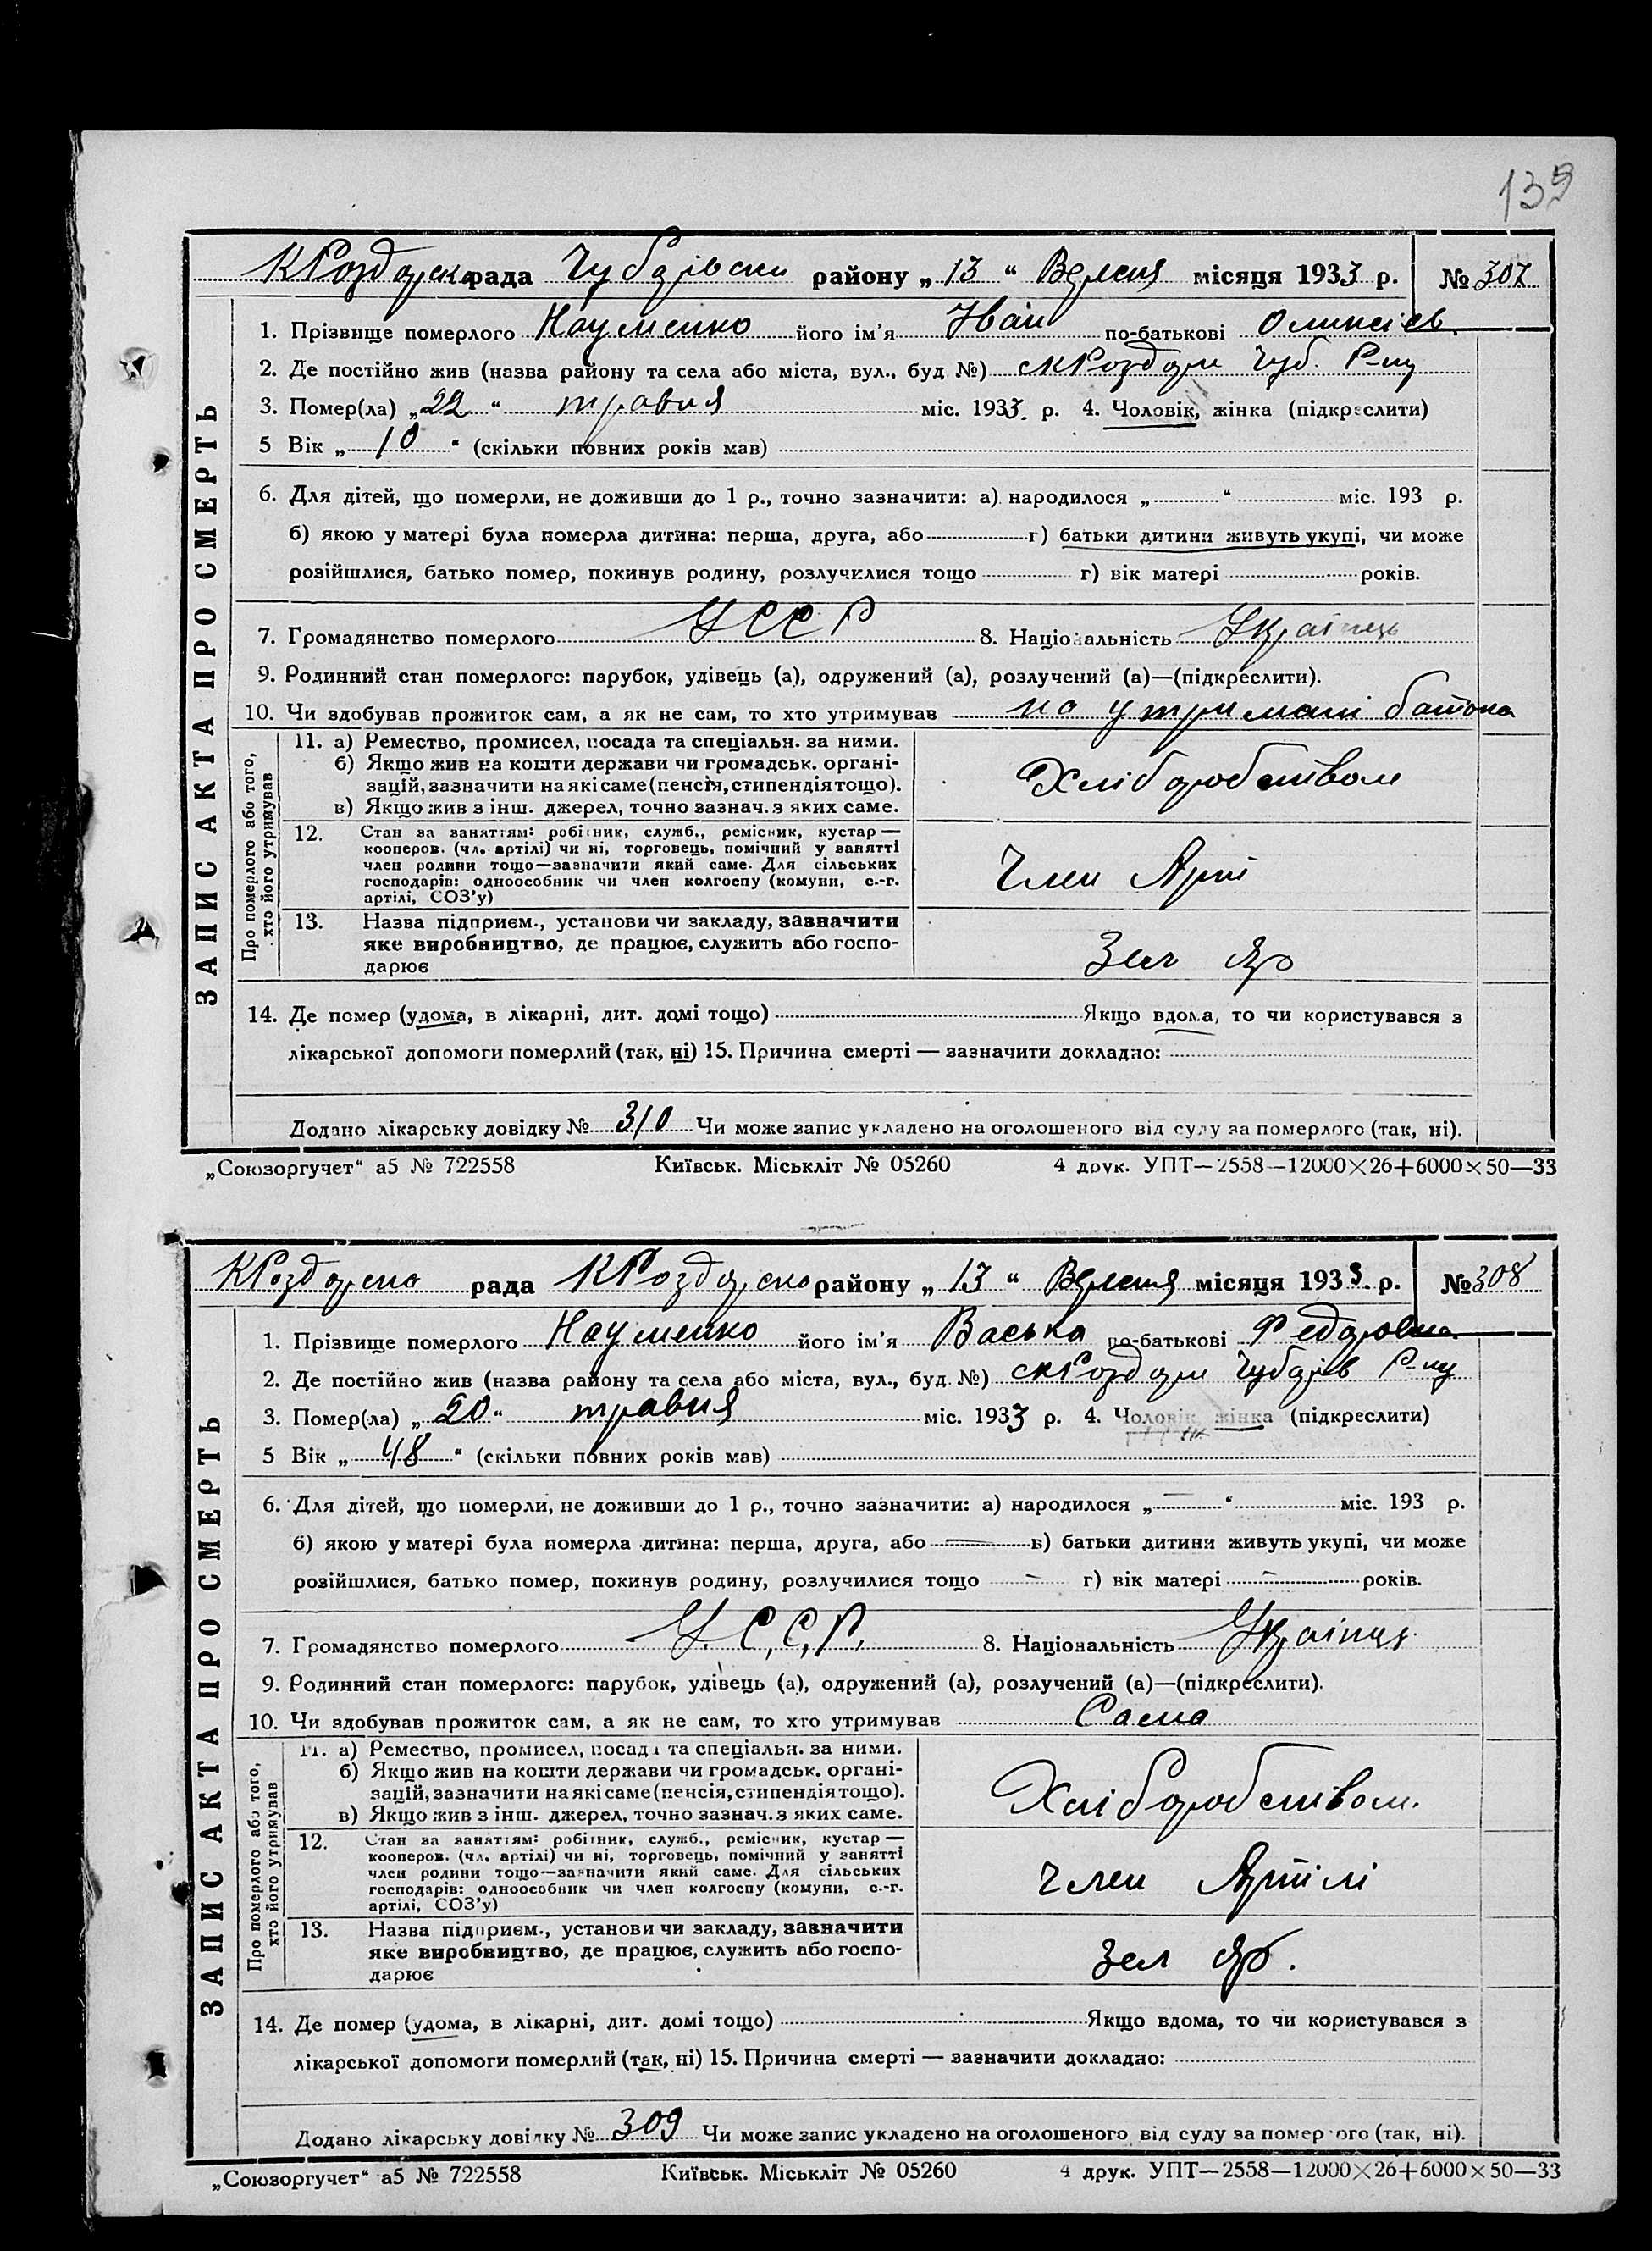 139
КРоздорска рада Чубарівськ району „ 13 “ Вересня місяця 1933 р. № 307
1. Прізвище померлого Науменко його ім’я Іван по-батькові
2. Де постійно жив (назва району та села або міста, вул., буд №) с КРоздори Чуб. Р-ну
3. Помер(ла) „ 22 “ травня міс. 1933. р. 4. Чоловік, жінка (підкреслити)
5 Вік „ 10 “ (скільки повних років мав)
6. Для дітей, що померли, не доживши до 1 р., точно зазначити: а) народилося „ “ міс. 193 р.
б) якою у матері була померла дитина: перша, друга, або г) батьки дитини живуть укупі, чи може
розійшлися, батько помер, покинув родину, розлучилися тощо г) вік матері років.
7. Громадянство померлого УССР 8. Національність Українець
9. Родинний стан померлого: парубок, удівець (а), одружений (а), розлучений (а)—(підкреслити).
10. Чи здобував прожиток сам, а як не сам, то хто утримував на утримані батька
ЗАПИС АКТА ПРО СМЕРТЬ
Про померлого або того,
хто його утримував
11. а) Ремество, промисел, посада та спеціальн. за ними.
б) Якщо жив на кошти держави чи громадськ. органі-
зацій, зазначити на які саме (пенсія, стипендія тощо).
в) Якщо жив з інш. джерел, точно зазнач. з яких саме.
Хліборобством
12. Стан за заняттям: робітник, служб., ремісник, кустар —
кооперов. (чл. артілі) чи ні, торговець, помічний у занятті
член родини тощо—зазначити який саме. Для сільських
господарів: одноособник чи член колгоспу (комуни, с.-г.
артілі, СОЗ’у)
Член Арті
13. Назва підприєм., установи чи закладу, зазначити
яке виробництво, де працює, служить або госпо-
дарює
Зел Яр
14. Де помер (удома, в лікарні, дит. домі тощо) Якщо вдома, то чи користувався з
лікарської допомоги померлий (так, ні) 15. Причина смерті — зазначити докладно:
Додано лікарську довідку № 310 Чи може запис укладено на оголошеного від суду за померлого (так, ні).
„Союзоргучет“ а5 № 722558 Київськ. Міськліт № 05260 4 друк. УПТ—2558—12000×26+6000×50—33
КРоздорска рада КРоздорска району „ 13 “ Вересня місяця 1933. р. № 308
1. Прізвище померлого Науменко його ім’я Васька по-батькові Федоровна
2. Де постійно жив (назва району та села або міста, вул., буд. №) с КРоздори Чубарів Р-ну
3. Помер(ла) „ 20 “ травня міс. 1933 р. 4. Чоловік, жінка (підкреслити)
5 Вік „ 48 “ (скільки повних років мав)
6. Для дітей, що померли, не доживши до 1 р., точно зазначити: а) народилося „ “ міс. 193 р.
б) якою у матері була померла дитина: перша, друга, або в) батьки дитини живуть укупі, чи може
розійшлися, батько помер, покинув родину, розлучилися тощо г) вік матері років.
7. Громадянство померлого У.С.С.Р. 8. Національність
9. Родинний стан померлого: парубок, удівець (а), одружений (а), розлучений (а)—(підкреслити).
10. Чи здобував прожиток сам, а як не сам, то хто утримував Сама
ЗАПИС АКТА ПРО СМЕРТЬ
Про померлого або того,
хто його утримував
11. а) Ремество, промисел, посада та спеціальн. за ними.
б) Якщо жив на кошти держави чи громадськ. органі-
зацій, зазначити на які саме (пенсія, стипендія тощо).
в) Якщо жив з інш. джерел, точно зазнач. з яких саме.
Хліборобством.
12. Стан за заняттям: робітник, служб., ремісник, кустар —
кооперов. (чл. артілі) чи ні, торговець, помічний у занятті
член родини тощо—зазначити який саме. Для сільських
господарів: одноособник чи член колгоспу (комуни, с.-г.
артілі, СОЗ’у)
Член Артілі
13. Назва підприєм., установи чи закладу, зазначити
яке виробництво, де працює, служить або госпо-
дарює
Зел Яр.
14. Де помер (удома, в лікарні, дит. домі тощо) Якщо вдома, то чи користувався з
лікарської допомоги померлий (так, ні) 15. Причина смерті — зазначити докладно:
Додано лікарську довідку № 309 Чи може запис укладено на оголошеного від суду за померлого (так, ні).
„Союзоргучет“ а5 № 722558 Київськ. Міськліт № 05260 4 друк. УПТ—2558—12000×26+6000×50—33